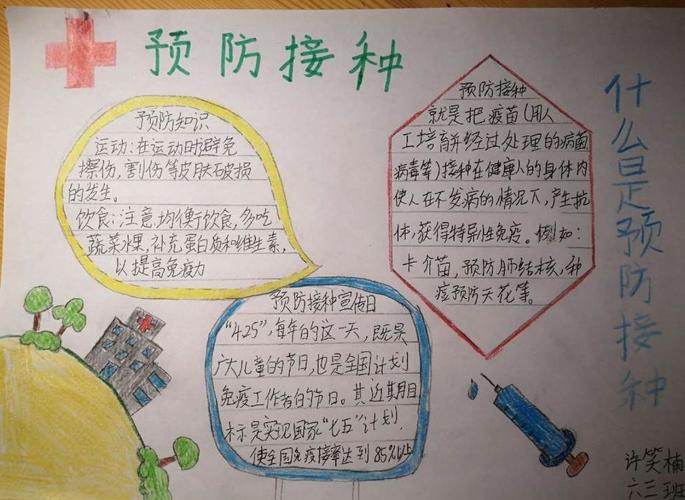 预防接种
预防知识
运动:在运动时避免
擦伤,割伤等皮肤破损
的发生。
饮食:注意均衡饮食,多吃
蔬菜水果,补充蛋白质和维生素,
以提高免疫力
预防接种
就是把疫苗(用人
工培育并经过处理的病菌
病毒等)接种在健康人的身体内
使人在不发病的情况下,产生抗
体,获得特异性免疫。例如:
卡介苗,预防肺结核,种
痘预防天花等。
什么是预防接种
预防接种宣传日
“4.25”,每年的这一天,既是
广大儿童的节日,也是全国计划
免疫工作者的节日。其近期目
标是实现国家“七五”计划.
使全国免疫接种率达到85%以上
许笑楠
六三班